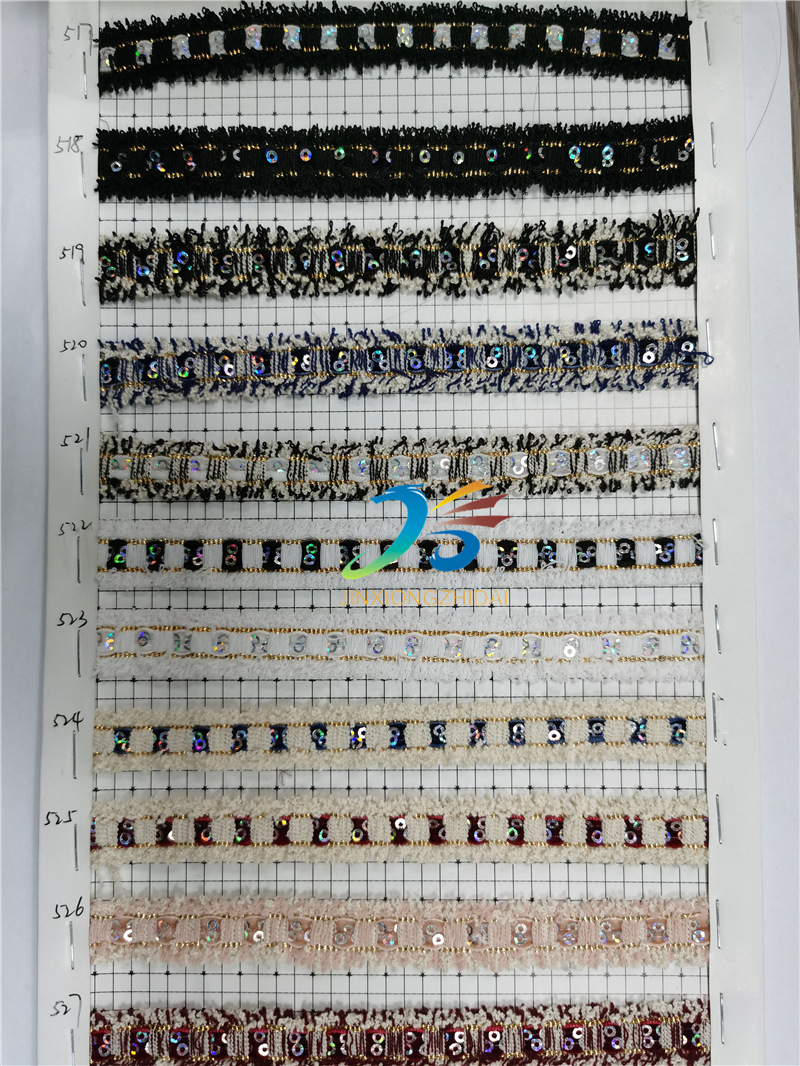 517
518
519
520
521
522
JINXIONGZHIDAI
523
524
525
526
527